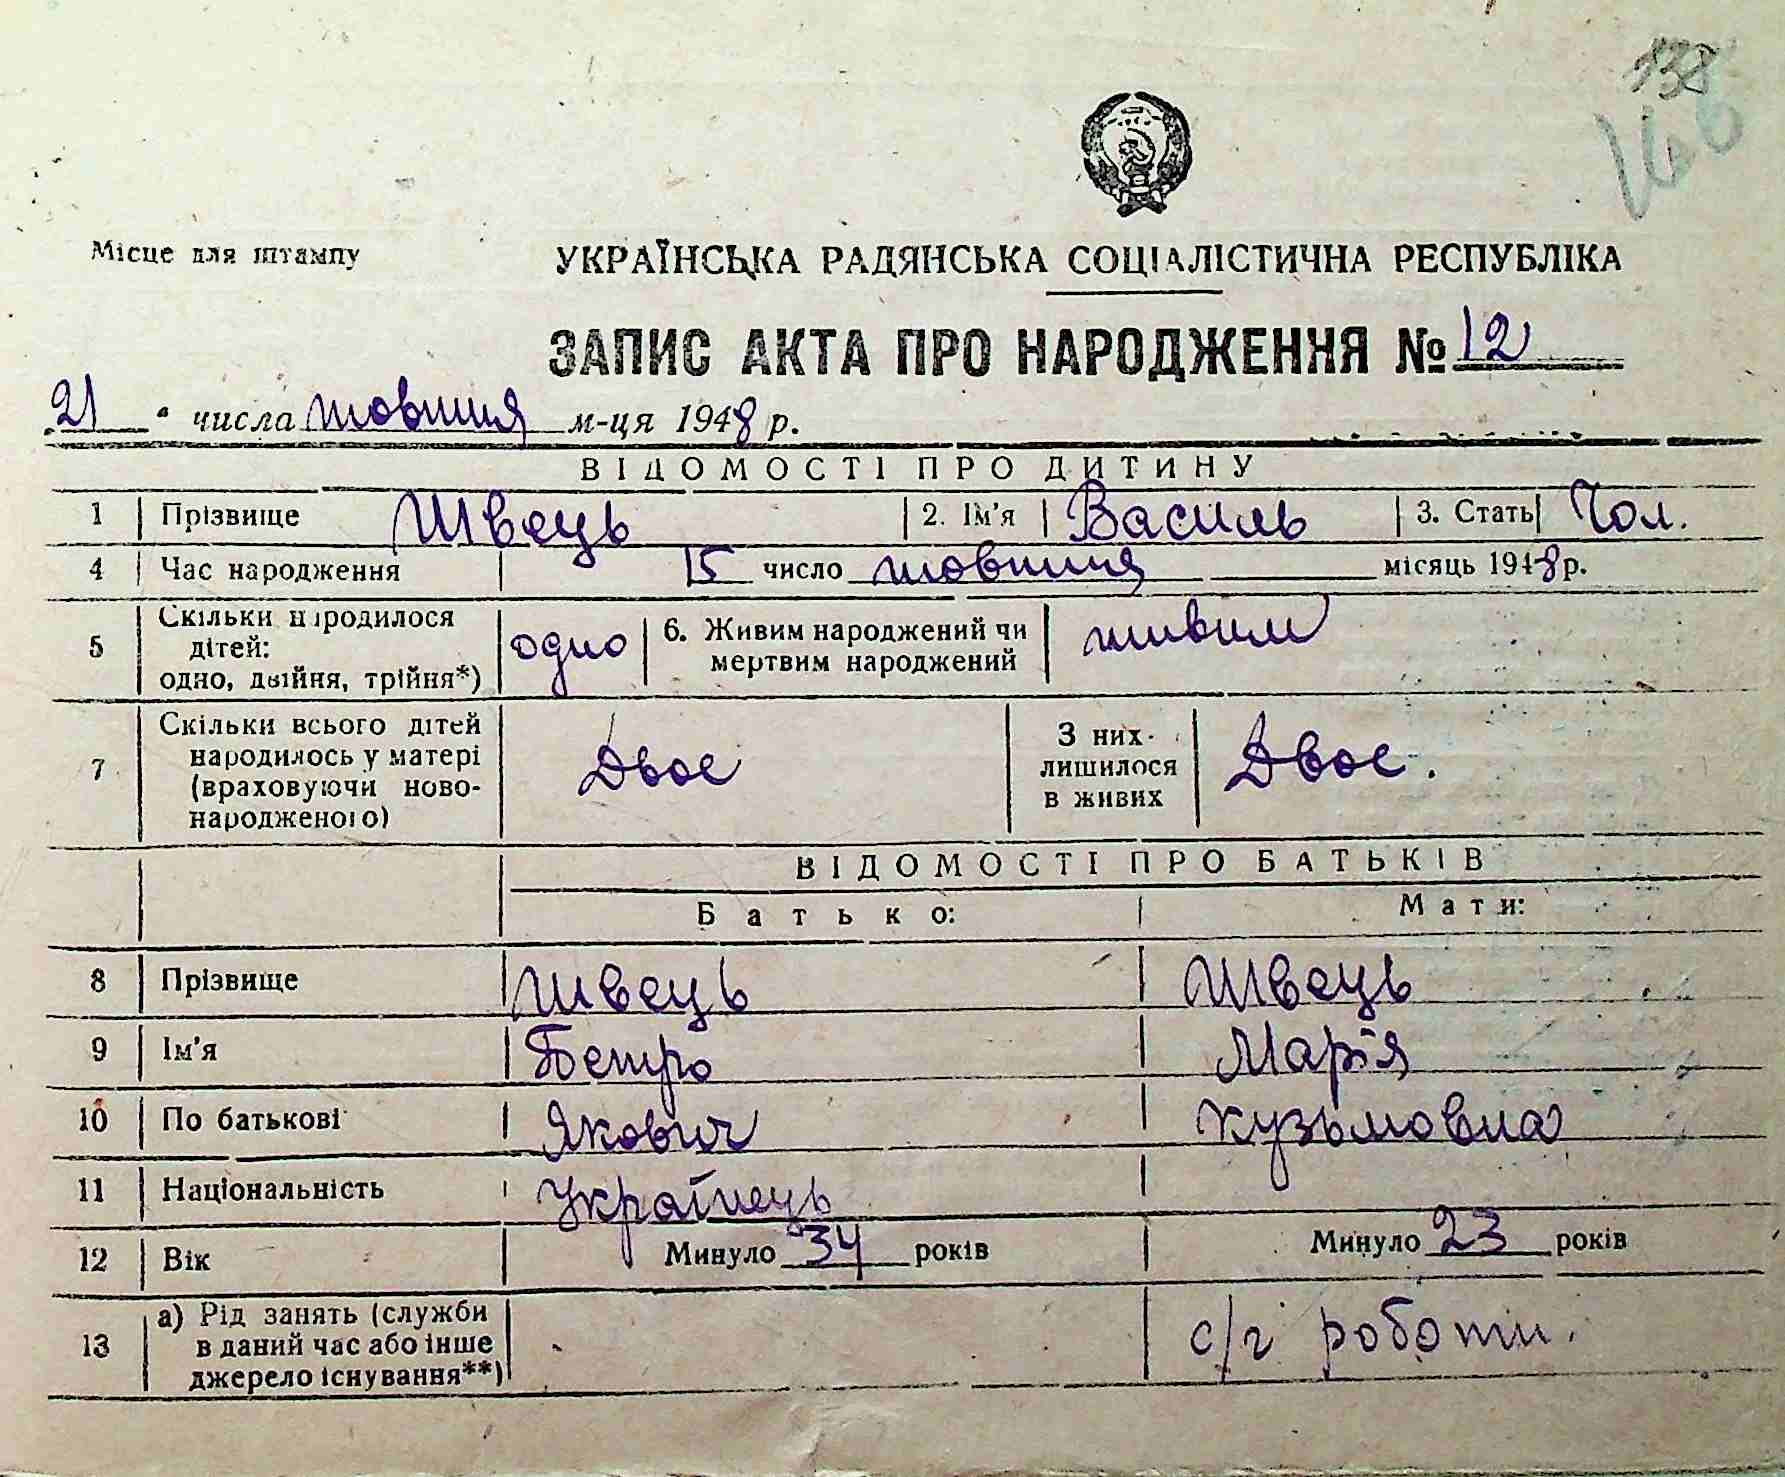 138
Місце для штампу
УКРАЇНСЬКА РАДЯНСЬКА СОЦІАЛІСТИЧНА РЕСПУБЛІКА
ЗАПИС АКТА ПРО НАРОДЖЕННЯ № 12
21 " числа жовтня м-ця 1948 р.
ВІДОМОСТІ ПРО ДИТИНУ
1 Прізвище Швець 2. Ім'я Василь 3. Стать Чол.
4 Час народження 15 число жовтня місяць 1948 р.
5 Скільки народилося дітей: одно, двійня, трійня*) одно 6. Живим народжений чи мертвим народжений живим
7 Скільки всього дітей народилось у матері (враховуючи новонародженого) Двоє З них лишилося в живих Двоє.
ВІДОМОСТІ ПРО БАТЬКІВ
Батько: Мати:
8 Прізвище Швець Швець
9 Ім'я Петро Марія
10 По батькові Якович Кузьмовна
11 Національність Українець
12 Вік Минуло 34 років Минуло 23 років
13 а) Рід занять (служби в даний час або інше джерело існування**) с/г роботи.